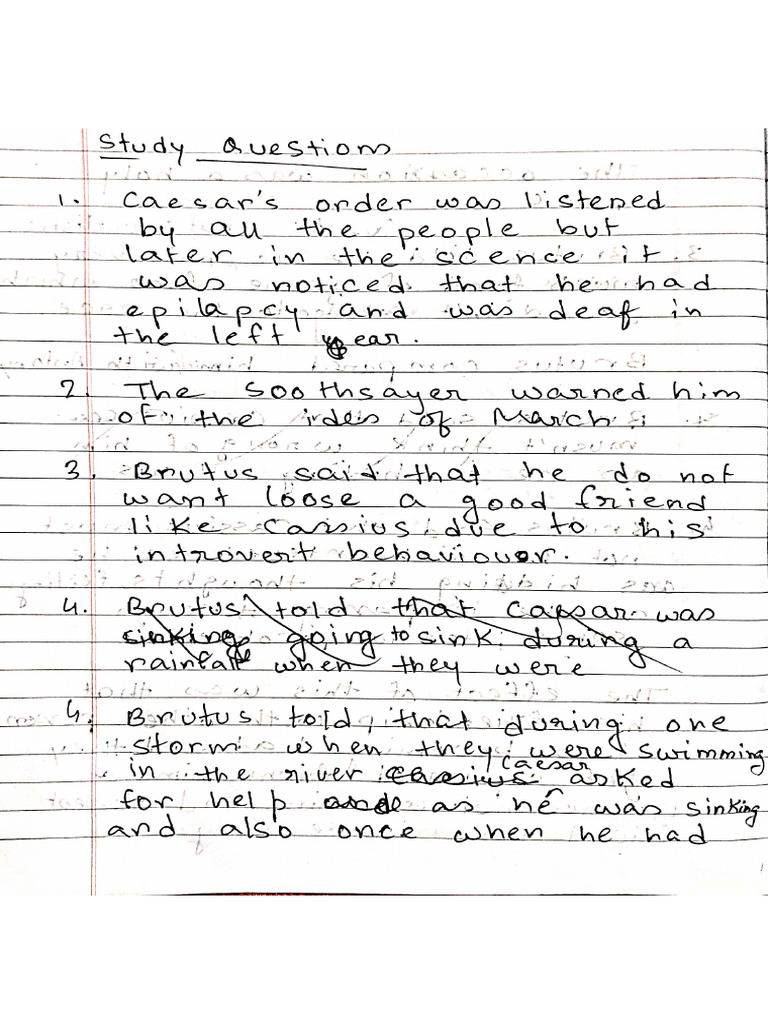 Study Questions
1. Caesar's order was listened
by all the people but
later in the scence it
was noticed that he had
epilapcy and was deaf in
the left ear.
2. The Soothsayer warned him
of the ides of March.
3. Brutus said that he do not
want loose a good friend
like Cassius due to his
introvert behaviouor.
4. Brutus told that Caesar was
sinking going to sink during a
rainfall when they were
4. Brutus told, that during one
storm when they were swimming
in the river cassius Caesar asked
for help as he was sinking
and also once when he had